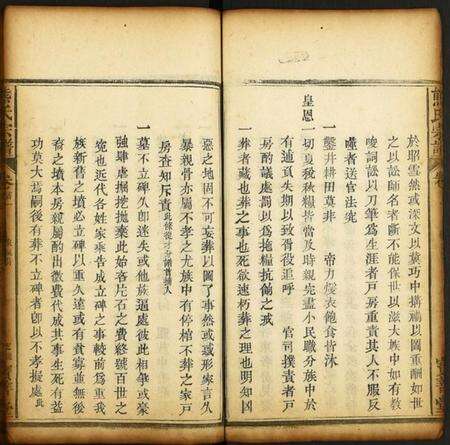 於昭雪然或深文以黃巧中搆禍以圖重酬如世
之以訟師名者斷不能保世以滋大族中如有教
唆詞訟以刀筆為生涯者戶房重責其人不服反
嘩者送官法究
一鑿井耕田莫非 帝力煖衣飽食皆沐
皇恩
一切夏稅秋糧皆當及時親完盡小民職分族中於
有逋負失期以致胥役追呼 官司撲責者戶
房酌議處罰以為拖糧抗餉之戒
一葬者藏也葬之事也死欲速朽葬之理也明知凶
惡之地固不可妄葬以圖了事然或惑形家言久
暴親骨亦屬不孝之尤族中有停棺不葬之家戶
房查知斥責
一墓不立碑久即迷失或他族逼處彼此相爭或豪
強肆虐掘挖拋棄此始吝片石之費終號百世之
冤也近代各姓家乘告成立碑之事較前為重我
族新舊之墳必立碑以重久遠或有貧寡並無後
裔之墳本房親屬酌出微費代成其事生死有益
功莫大焉嗣後有葬不立碑者即以不孝擬處
熊氏宗譜